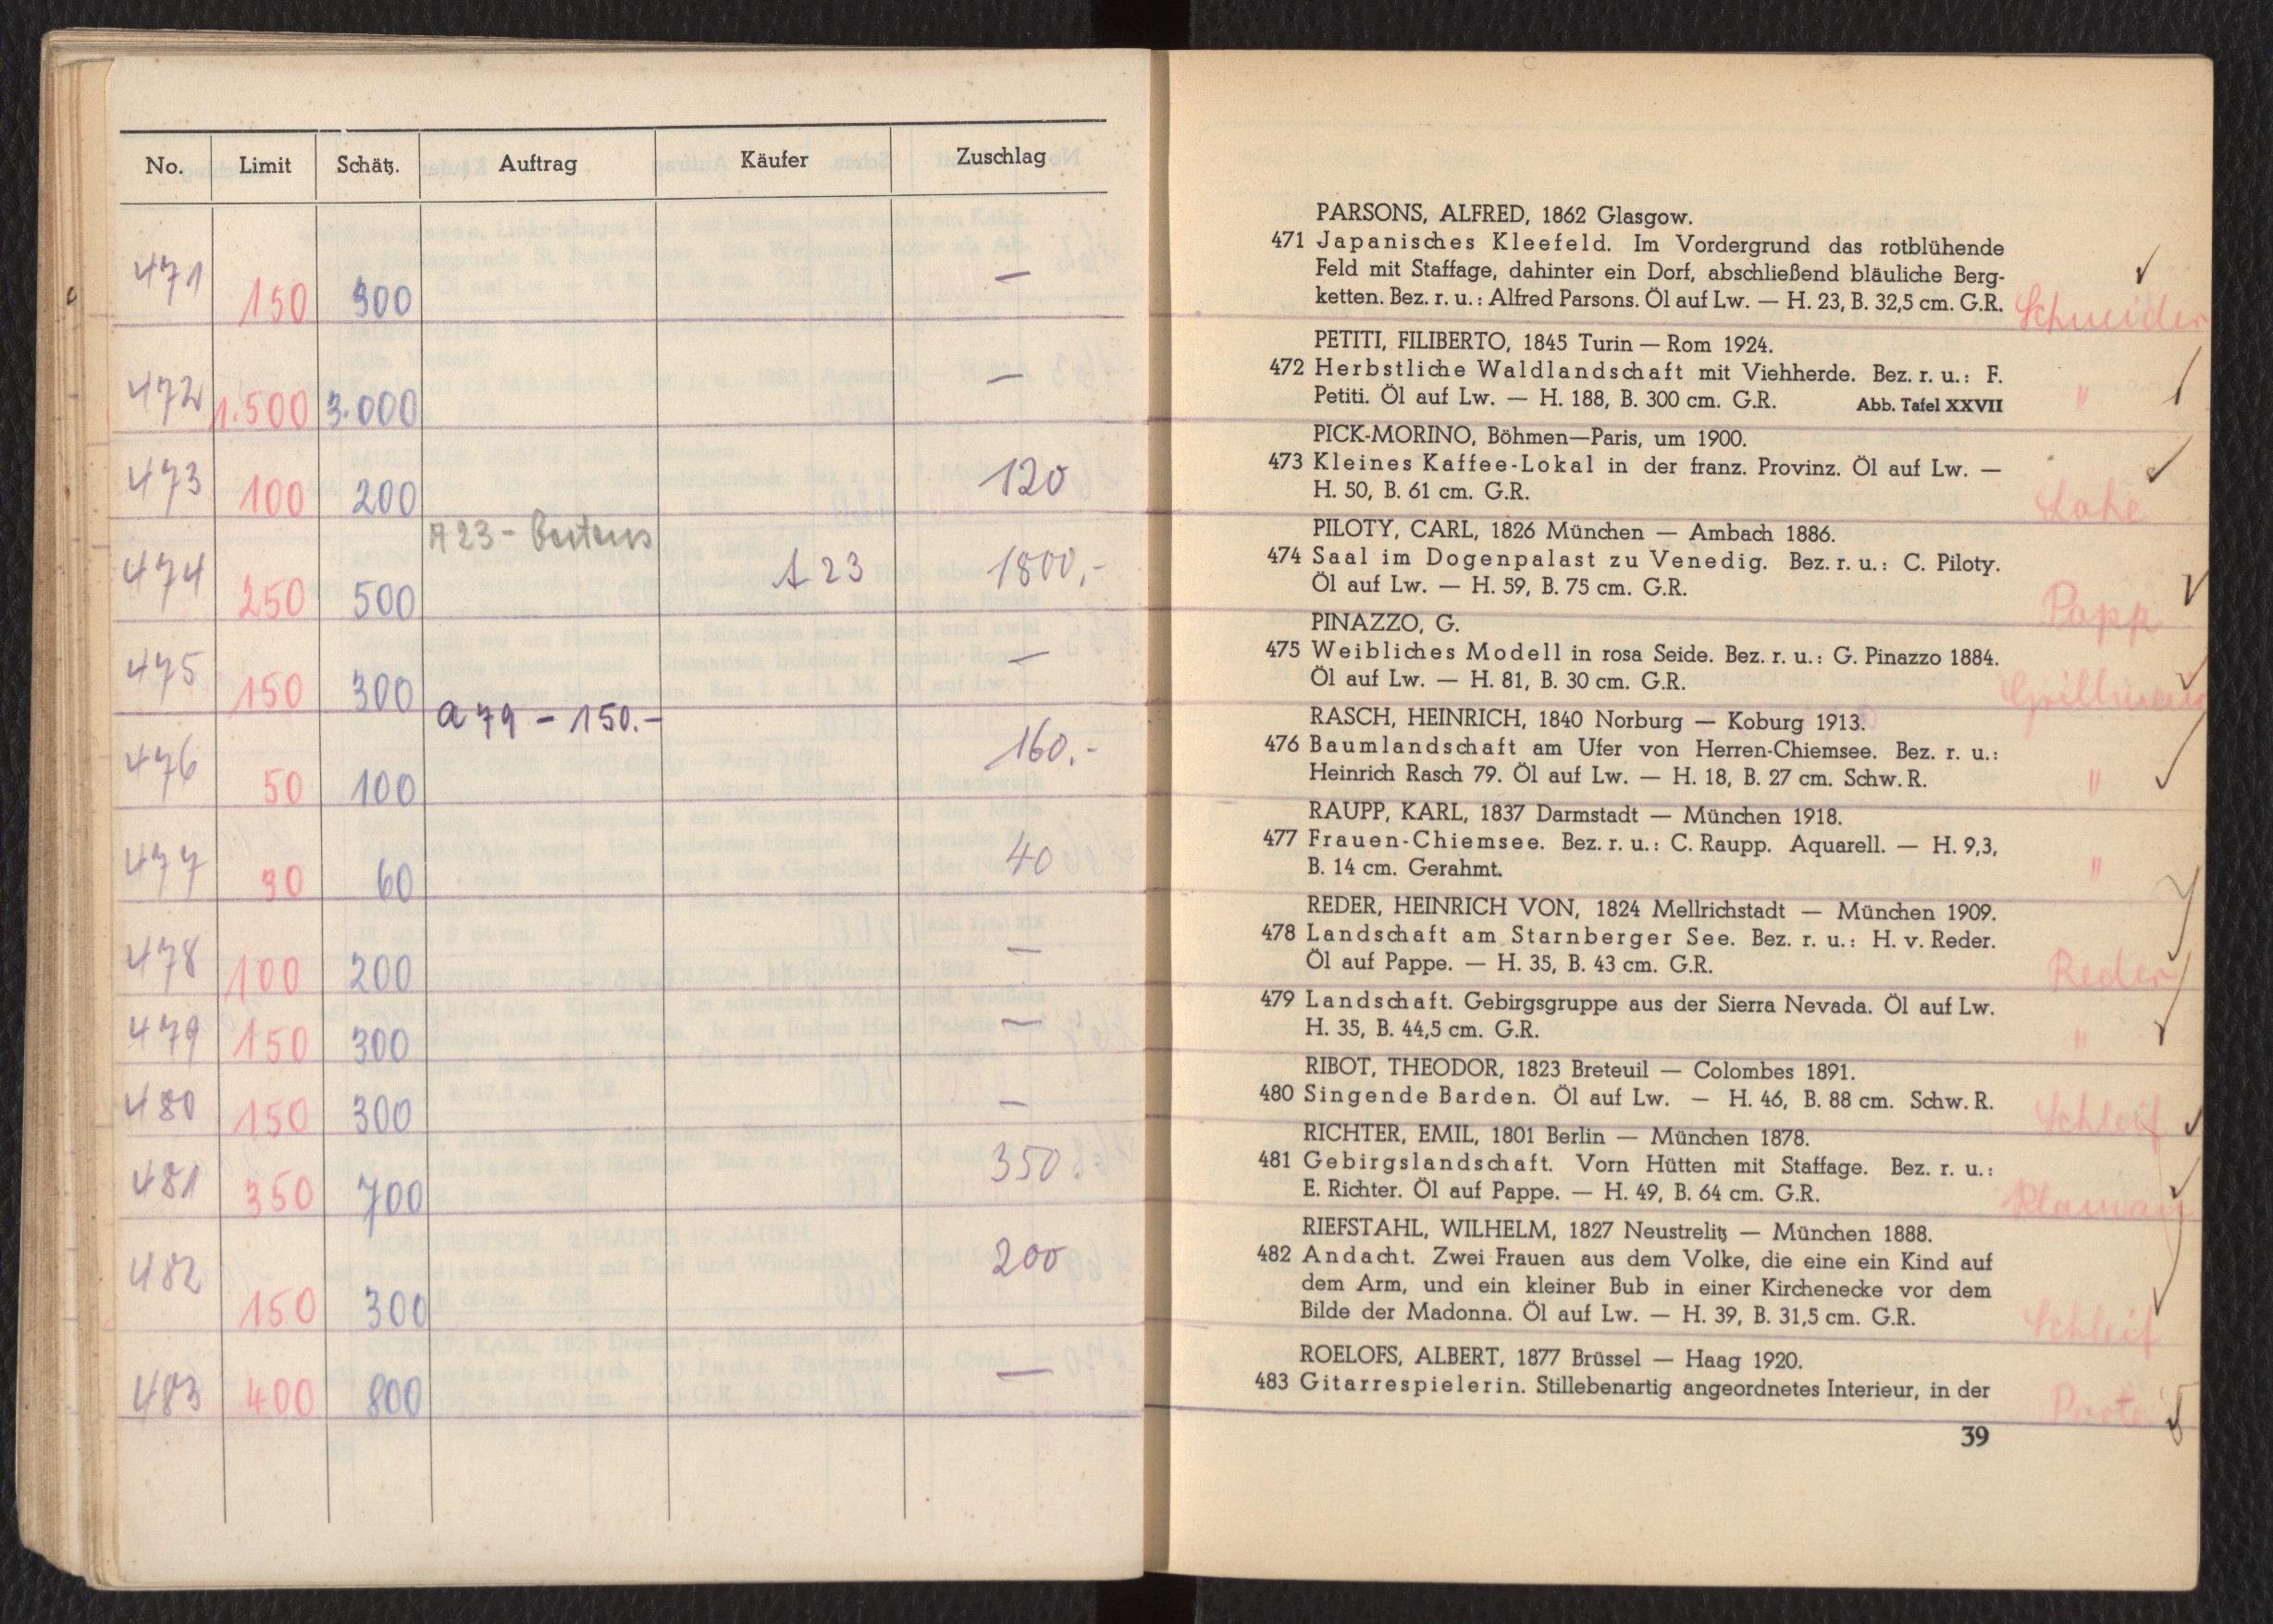 No. Limit Schätz. Auftrag Käufer Zuschlag
471 150 300 —
472 1.500 3.000 —
473 100 200 120
A 23 - bestens
474 250 500 A 23 1800,-
475 150 300 —
a 79 - 150.-
476 50 100 160.-
477 30 60 40
478 100 200 —
479 150 300 —
480 150 300 —
481 350 700 350
482 150 300 200
483 400 800 —
PARSONS, ALFRED, 1862 Glasgow.
471 Japanisches Kleefeld. Im Vordergrund das rotblühende
Feld mit Staffage, dahinter ein Dorf, abschließend bläuliche Berg-
ketten. Bez. r. u.: Alfred Parsons. Öl auf Lw. — H. 23, B. 32,5 cm. G.R. Schneider
PETITI, FILIBERTO, 1845 Turin — Rom 1924.
472 Herbstliche Waldlandschaft mit Viehherde. Bez. r. u.: F.
Petiti. Öl auf Lw. — H. 188, B. 300 cm. G.R. Abb. Tafel XXVII "
PICK-MORINO, Böhmen—Paris, um 1900.
473 Kleines Kaffee-Lokal in der franz. Provinz. Öl auf Lw. —
H. 50, B. 61 cm. G.R.
PILOTY, CARL, 1826 München — Ambach 1886.
474 Saal im Dogenpalast zu Venedig. Bez. r. u.: C. Piloty.
Öl auf Lw. — H. 59, B. 75 cm. G.R. Papp
PINAZZO, G.
475 Weibliches Modell in rosa Seide. Bez. r. u.: G. Pinazzo 1884.
Öl auf Lw. — H. 81, B. 30 cm. G.R.
RASCH, HEINRICH, 1840 Norburg — Koburg 1913.
476 Baumlandschaft am Ufer von Herren-Chiemsee. Bez. r. u.:
Heinrich Rasch 79. Öl auf Lw. — H. 18, B. 27 cm. Schw. R. "
RAUPP, KARL, 1837 Darmstadt — München 1918.
477 Frauen-Chiemsee. Bez. r. u.: C. Raupp. Aquarell. — H. 9,3,
B. 14 cm. Gerahmt. "
REDER, HEINRICH VON, 1824 Mellrichstadt — München 1909.
478 Landschaft am Starnberger See. Bez. r. u.: H. v. Reder.
Öl auf Pappe. — H. 35, B. 43 cm. G.R. Reder
479 Landschaft. Gebirgsgruppe aus der Sierra Nevada. Öl auf Lw.
H. 35, B. 44,5 cm. G.R. "
RIBOT, THEODOR, 1823 Breteuil — Colombes 1891.
480 Singende Barden. Öl auf Lw. — H. 46, B. 88 cm. Schw. R. Schleif
RICHTER, EMIL, 1801 Berlin — München 1878.
481 Gebirgslandschaft. Vorn Hütten mit Staffage. Bez. r. u.:
E. Richter. Öl auf Pappe. — H. 49, B. 64 cm. G.R.
RIEFSTAHL, WILHELM, 1827 Neustrelitz — München 1888.
482 Andacht. Zwei Frauen aus dem Volke, die eine ein Kind auf
dem Arm, und ein kleiner Bub in einer Kirchenecke vor dem
Bilde der Madonna. Öl auf Lw. — H. 39, B. 31,5 cm. G.R. Schleif
ROELOFS, ALBERT, 1877 Brüssel — Haag 1920.
483 Gitarrespielerin. Stillebenartig angeordnetes Interieur, in der
39